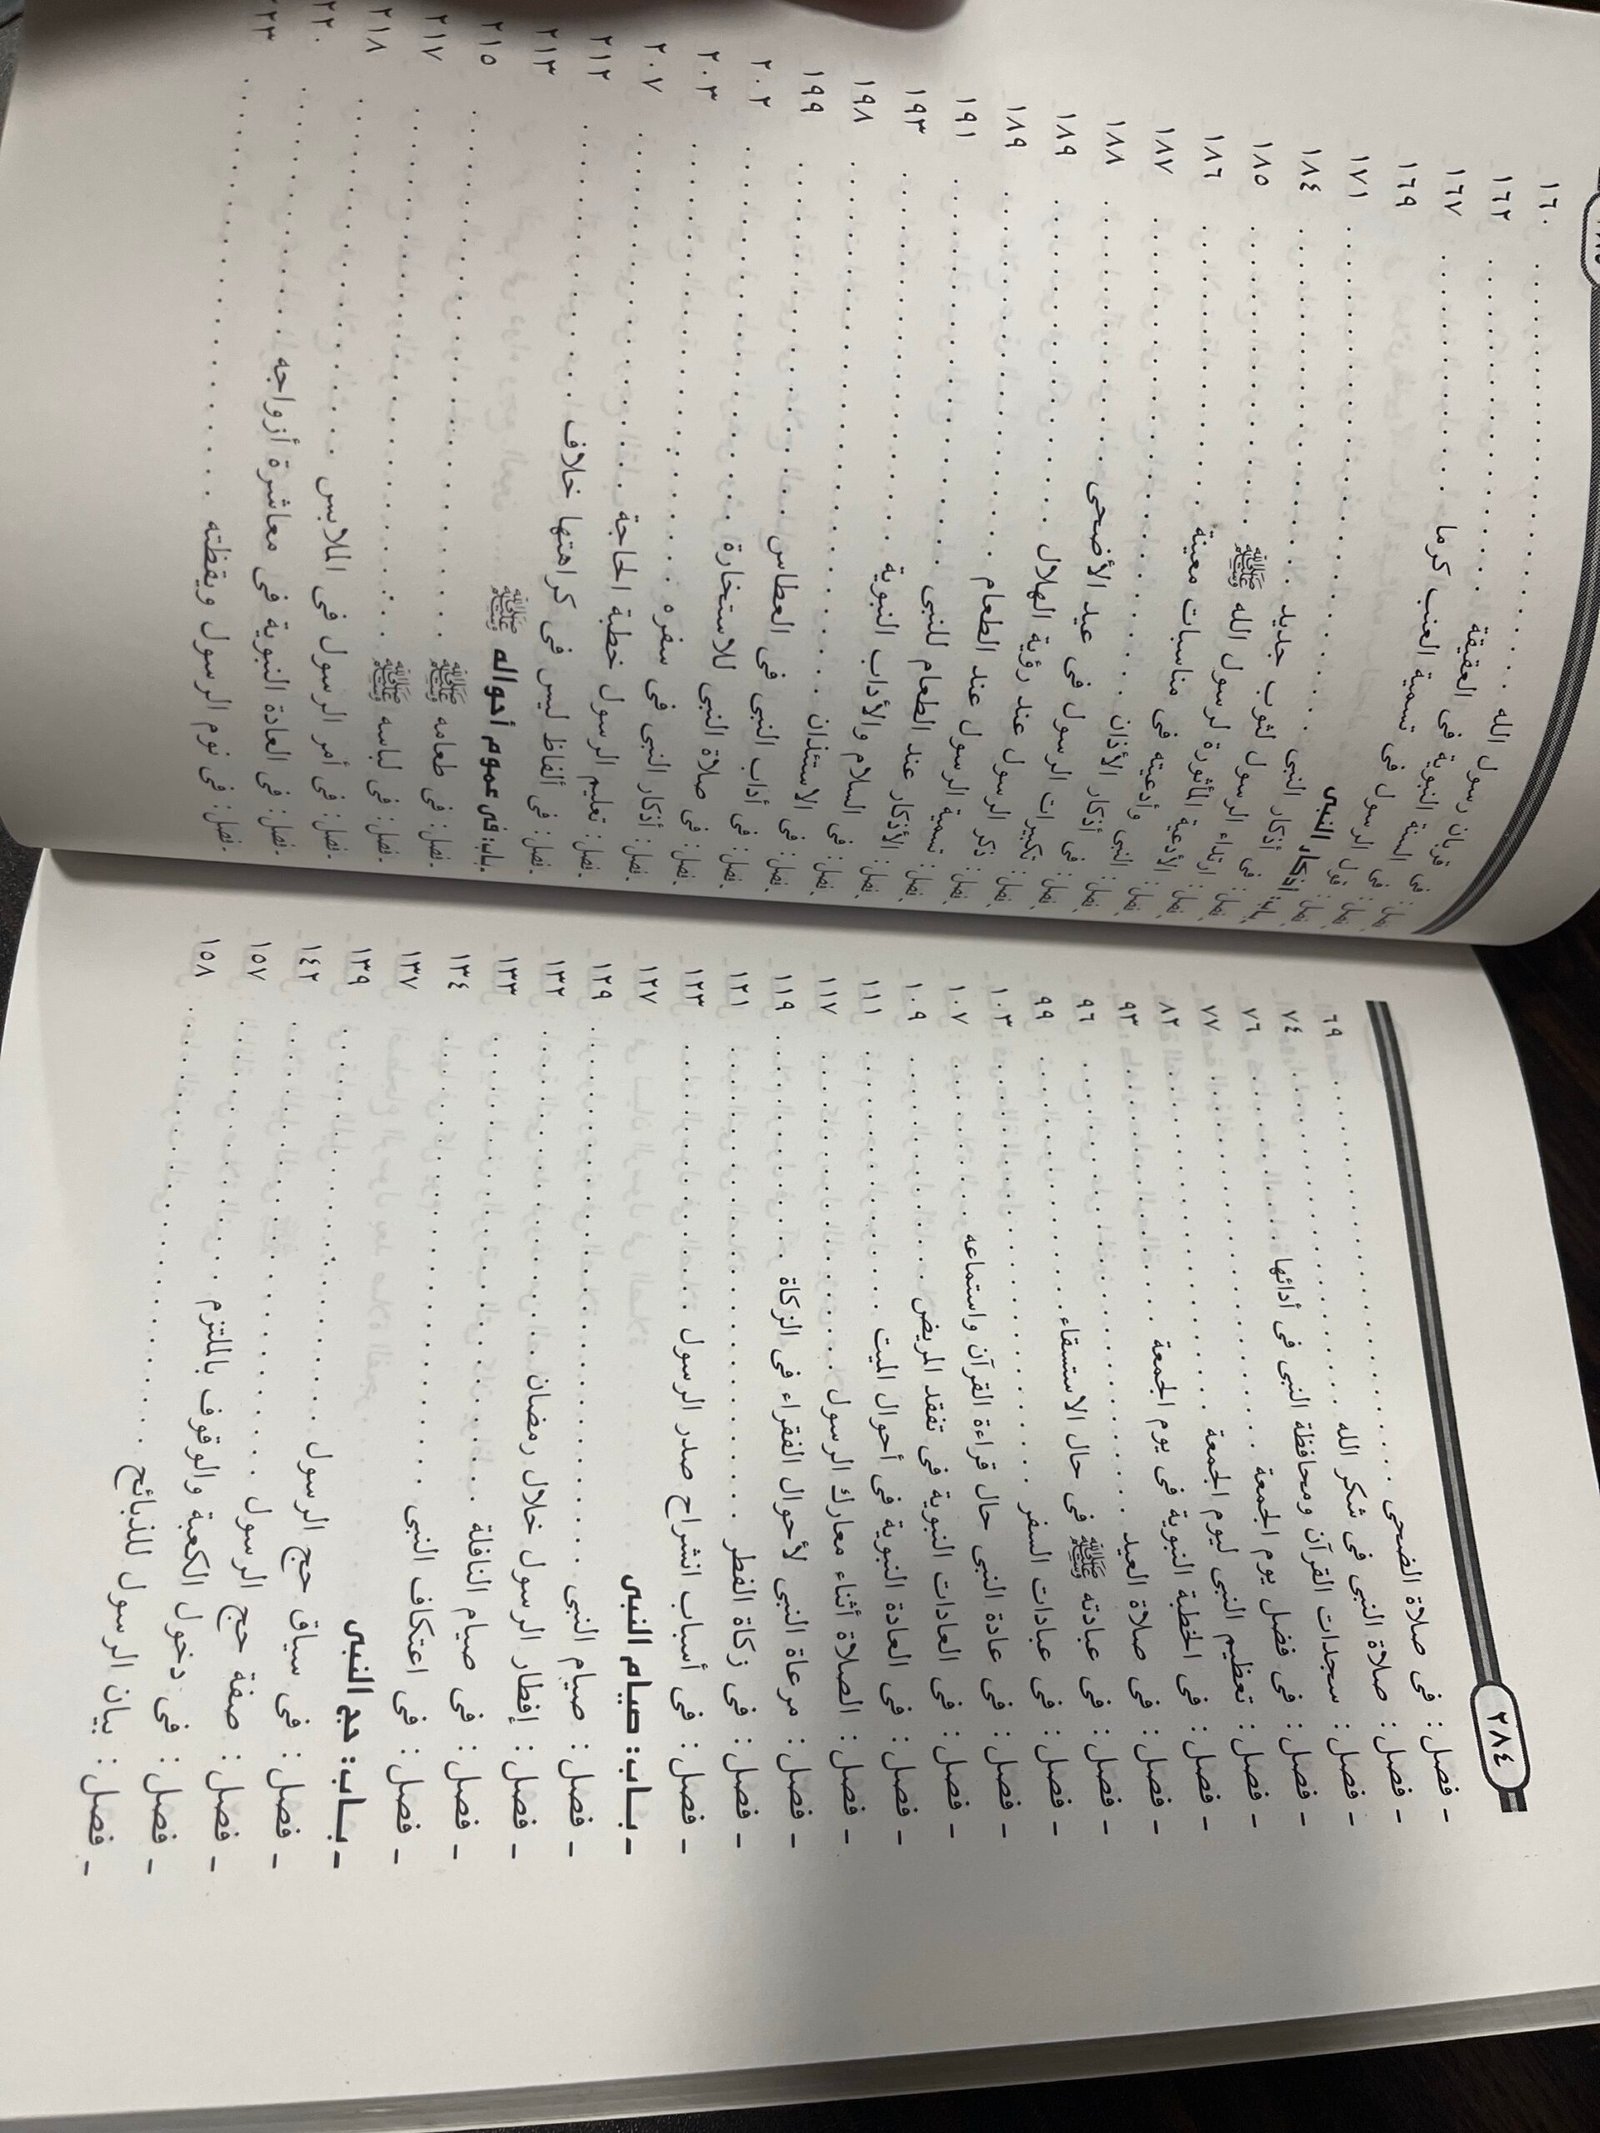 ٢٨٤
- فصل: فى صلاة الضحى ٦٩
- فصل: صلاة النبى فى شكر الله ٧٤
- فصل: سجدات القرآن ومحافظة النبى فى أدائها ٧٦
- فصل: فى فضل يوم الجمعة ٧٧
- فصل: تعظيم النبى ليوم الجمعة ٨٢
- فصل: فى الخطبة النبوية فى يوم الجمعة ٩٣
- فصل: فى صلاة العيد ٩٦
- فصل: فى عبادته ﷺ فى حال الاستسقاء ٩٩
- فصل: فى عبادات السفر ١٠٣
- فصل: فى عادة النبى حال قراءة القرآن واستماعه ١٠٧
- فصل: فى العادات النبوية فى تفقد المريض ١٠٩
- فصل: فى العادة النبوية فى أحوال الميت ١١١
- فصل: الصلاة أثناء معارك الرسول ١١٧
- فصل: مرعاة النبى لأحوال الفقراء فى الزكاة ١١٩
- فصل: فى زكاة الفطر ١٢١
- فصل: فى أسباب انشراح صدر الرسول ١٢٣
- باب: صيام النبى ١٢٧
- فصل: صيام النبى ١٢٩
- فصل: إفطار الرسول خلال رمضان ١٣٢
- فصل: فى صيام النافلة ١٣٣
- فصل: فى اعتكاف النبى ١٣٤
- باب: حج النبى ١٣٧
- فصل: فى سياق حج الرسول ١٣٩
- فصل: صفة حج الرسول ١٤٢
- فصل: فى دخول الكعبة والوقوف بالملتزم ١٥٧
- فصل: بيان الرسول للذبائح ١٥٨
فصل: فى قربان رسول الله ١٦٠
فصل: فى السنة النبوية فى العقيقة ١٦٢
فصل: قول الرسول فى تسمية العنب كرما ١٦٧
باب: أذكار النبى ١٦٩
فصل: فى أذكار النبى ١٧١
فصل: ارتداء الرسول لثوب جديد ١٨٤
فصل: الأدعية المأثورة لرسول الله ﷺ ١٨٥
فصل: النبى وأدعيته فى مناسبات معينة ١٨٦
فصل: فى أذكار الأذان ١٨٧
فصل: تكبيرات الرسول فى عيد الأضحى ١٨٨
فصل: ذكر الرسول عند رؤية الهلال ١٨٩
فصل: تسمية الرسول عند الطعام ١٨٩
فصل: الأذكار عند الطعام للنبى ١٩١
فصل: فى السلام والأداب النبوية ١٩٣
فصل: فى الاستئذان ١٩٨
فصل: فى أداب النبى فى العطاس ١٩٩
فصل: فى صلاة النبى للاستخارة ٢٠٢
فصل: أذكار النبى فى سفره ٢٠٣
فصل: تعليم الرسول خطبة الحاجة ٢٠٧
فصل: فى ألفاظ ليس فى كراهتها خلاف ٢١٢
باب: فى عموم أحواله ﷺ ٢١٣
فصل: فى طعامه ﷺ ٢١٥
فصل: فى لباسه ﷺ ٢١٧
فصل: فى أمر الرسول فى الملابس ٢١٨
فصل: فى العادة النبوية فى معاشرة أزواجه ٢٢٠
فصل: فى نوم الرسول ويقظته ٢٢٣